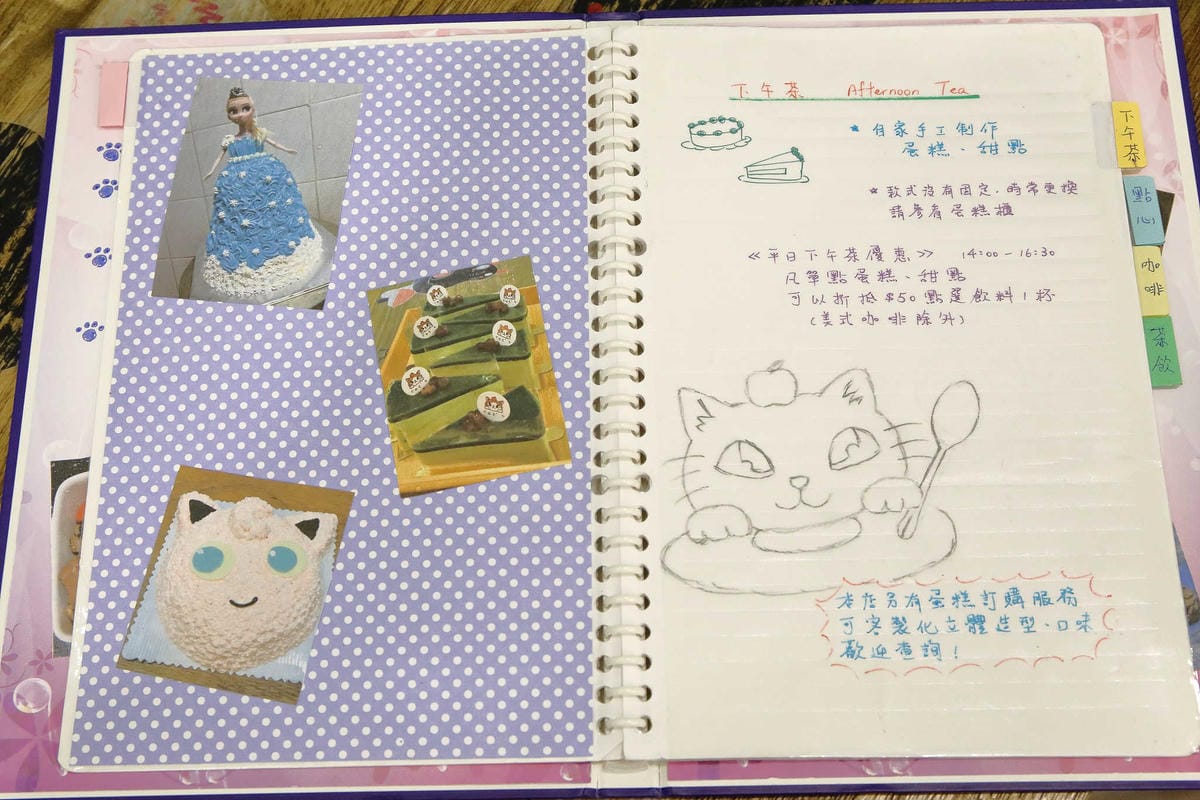 下午茶 Afternoon Tea
★ 自家手工製作
蛋糕、甜點
★ 款式沒有固定,時常更換
請參看蛋糕櫃
《平日下午茶優惠》 14:00-16:30
凡單點蛋糕、甜點
可以折抵$50點選飲料1杯
(美式咖啡除外)
本店另有蛋糕訂購服務
可客製化立體造型、口味
歡迎查詢!
下午茶
點心
咖啡
茶飲